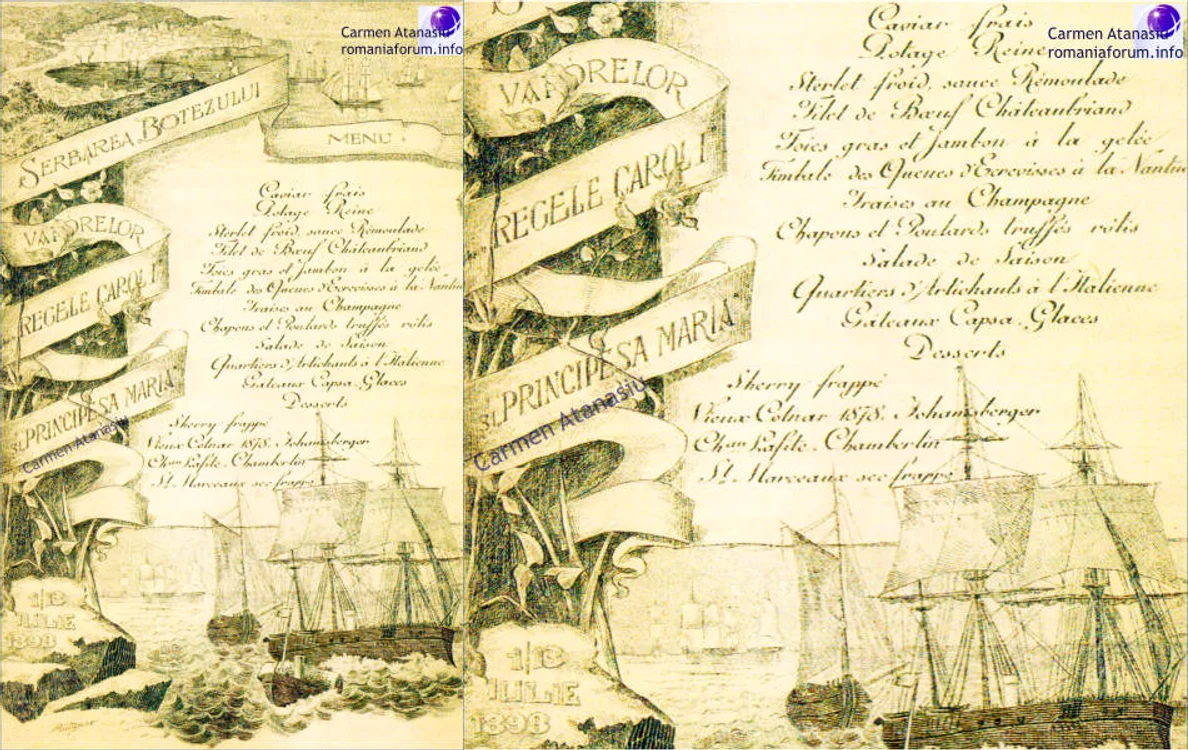 Carmen Atanasiu
romaniaforum.info
SERBAREA BOTEZULUI
MENU
VAPORELOR
REGELE CAROL I
SI PRINCIPESA MARIA
Carmen Atanasiu
Caviar frais
Potage Reine
Sterlet froid, sauce Rémoulade
Filet de Bœuf Châteaubriand
Foies gras et Jambon à la gelée
Timbale des Queues d'Ecrevisses à la Nantu
Fraises au Champagne
Chapons et Poulards truffés rôtis
Salade de Saison
Quartiers d'Artichauts à l'Italienne
Gâteaux Capsa. Glaces
Desserts
Sherry frappé
Vieux Cotnar 1878. Johannsberger
Chau Lafite. Chambertin
St Marceaux sec frappé
1/13
IULIE
1898
Carmen Atanasiu
romaniaforum.info
VAPORELOR
REGELE CAROL I
SI PRINCIPESA MARIA
Carmen Atanasiu
Caviar frais
Potage Reine
Sterlet froid, sauce Rémoulade
Filet de Bœuf Châteaubriand
Foies gras et Jambon à la gelée
Timbale des Queues d'Ecrevisses à la Nantu
Fraises au Champagne
Chapons et Poulards truffés rôtis
Salade de Saison
Quartiers d'Artichauts à l'Italienne
Gâteaux Capsa. Glaces
Desserts
Sherry frappé
Vieux Cotnar 1878. Johannsberger
Chau Lafite. Chambertin
St Marceaux sec frappé
1/13
IULIE
1898